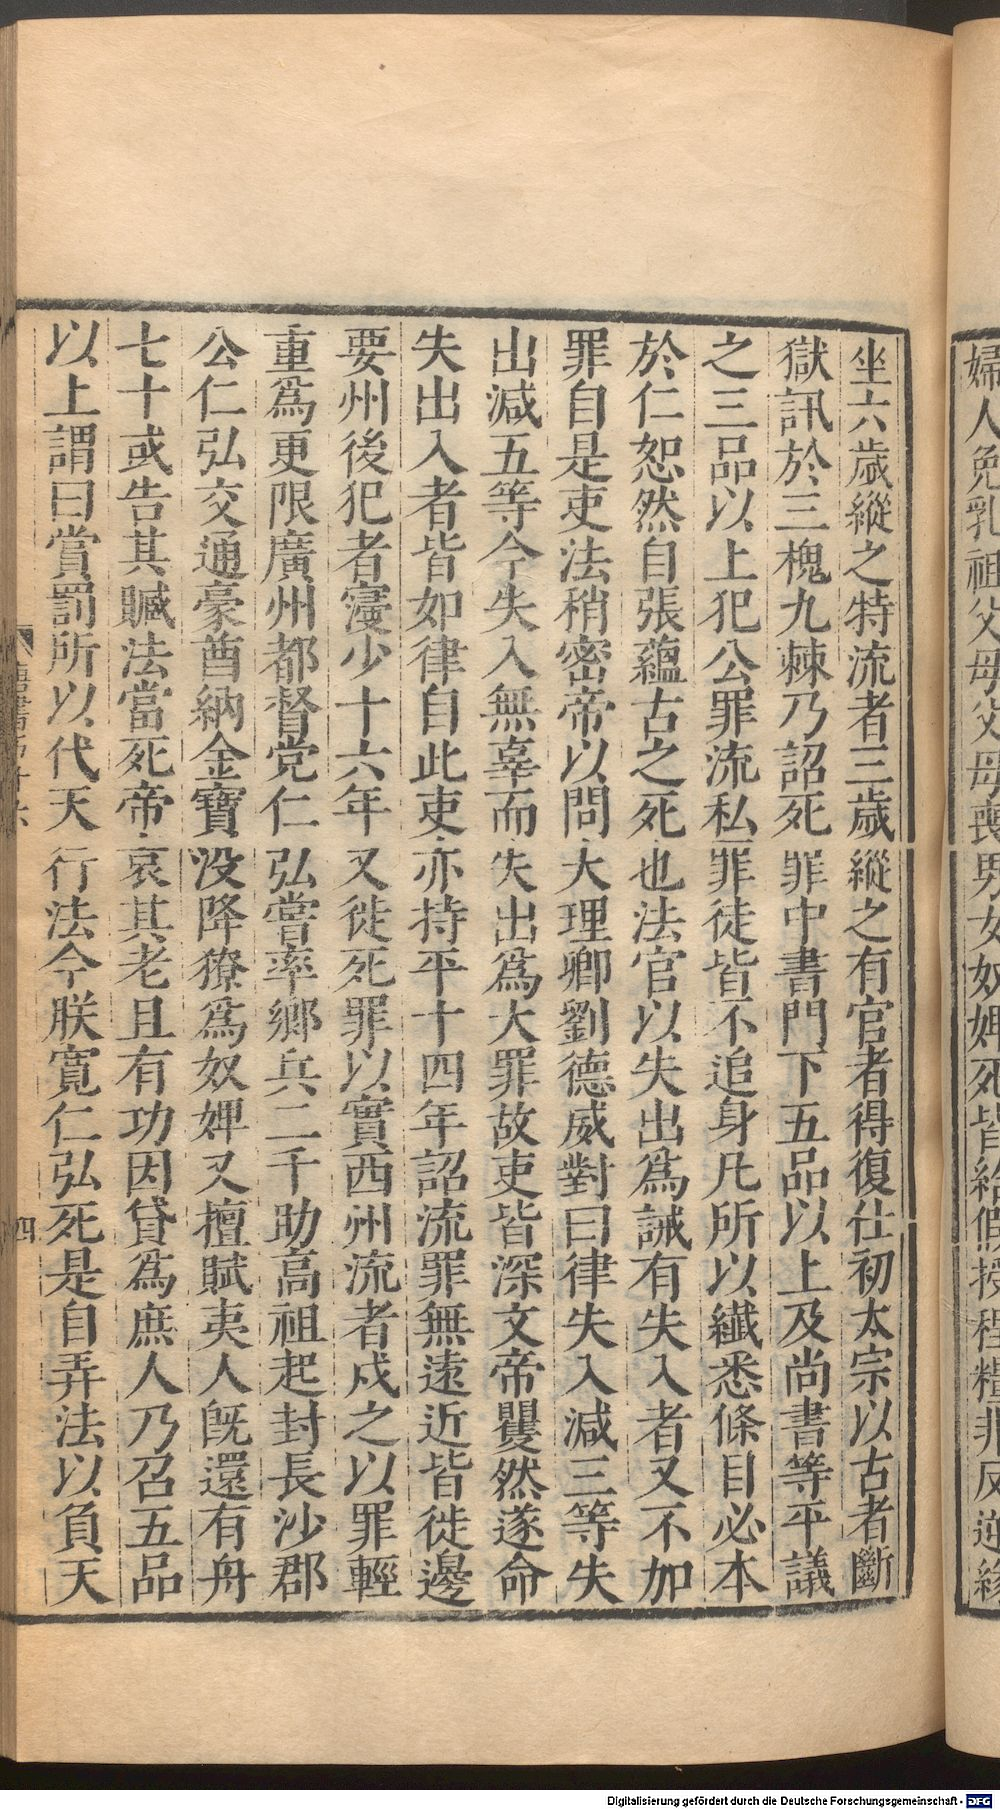 婦人免乳祖父母父母喪男女奴婢死皆給假授程糧非反逆緣
坐六歲縱之特流者三歲縱之有官者得復仕初太宗以古者斷
獄訊於三槐九棘乃詔死罪中書門下五品以上及尚書等平議
之三品以上犯公罪流私罪徒皆不追身凡所以纖悉條目必本
於仁恕然自張蘊古之死也法官以失出爲誡有失入者又不加
罪自是吏法稍密帝以問大理卿劉德威對曰律失入減三等失
出減五等今失入無辜而失出爲大罪故吏皆深文帝矍然遂命
失出入者皆如律自此吏亦持平十四年詔流罪無遠近皆徙邊
要州後犯者寖少十六年又徙死罪以實西州流者戍之以罪輕
重爲更限廣州都督党仁弘嘗率鄉兵二千助高祖起封長沙郡
公仁弘交通豪酋納金寶没降獠爲奴婢又擅賦夷人旣還有舟
七十或告其贓法當死帝哀其老且有功因貸爲庶人乃召五品
以上謂曰賞罰所以代天行法今朕寬仁弘死是自弄法以負天
四
Digitalisierung gefördert durch die Deutsche Forschungsgemeinschaft - DFG